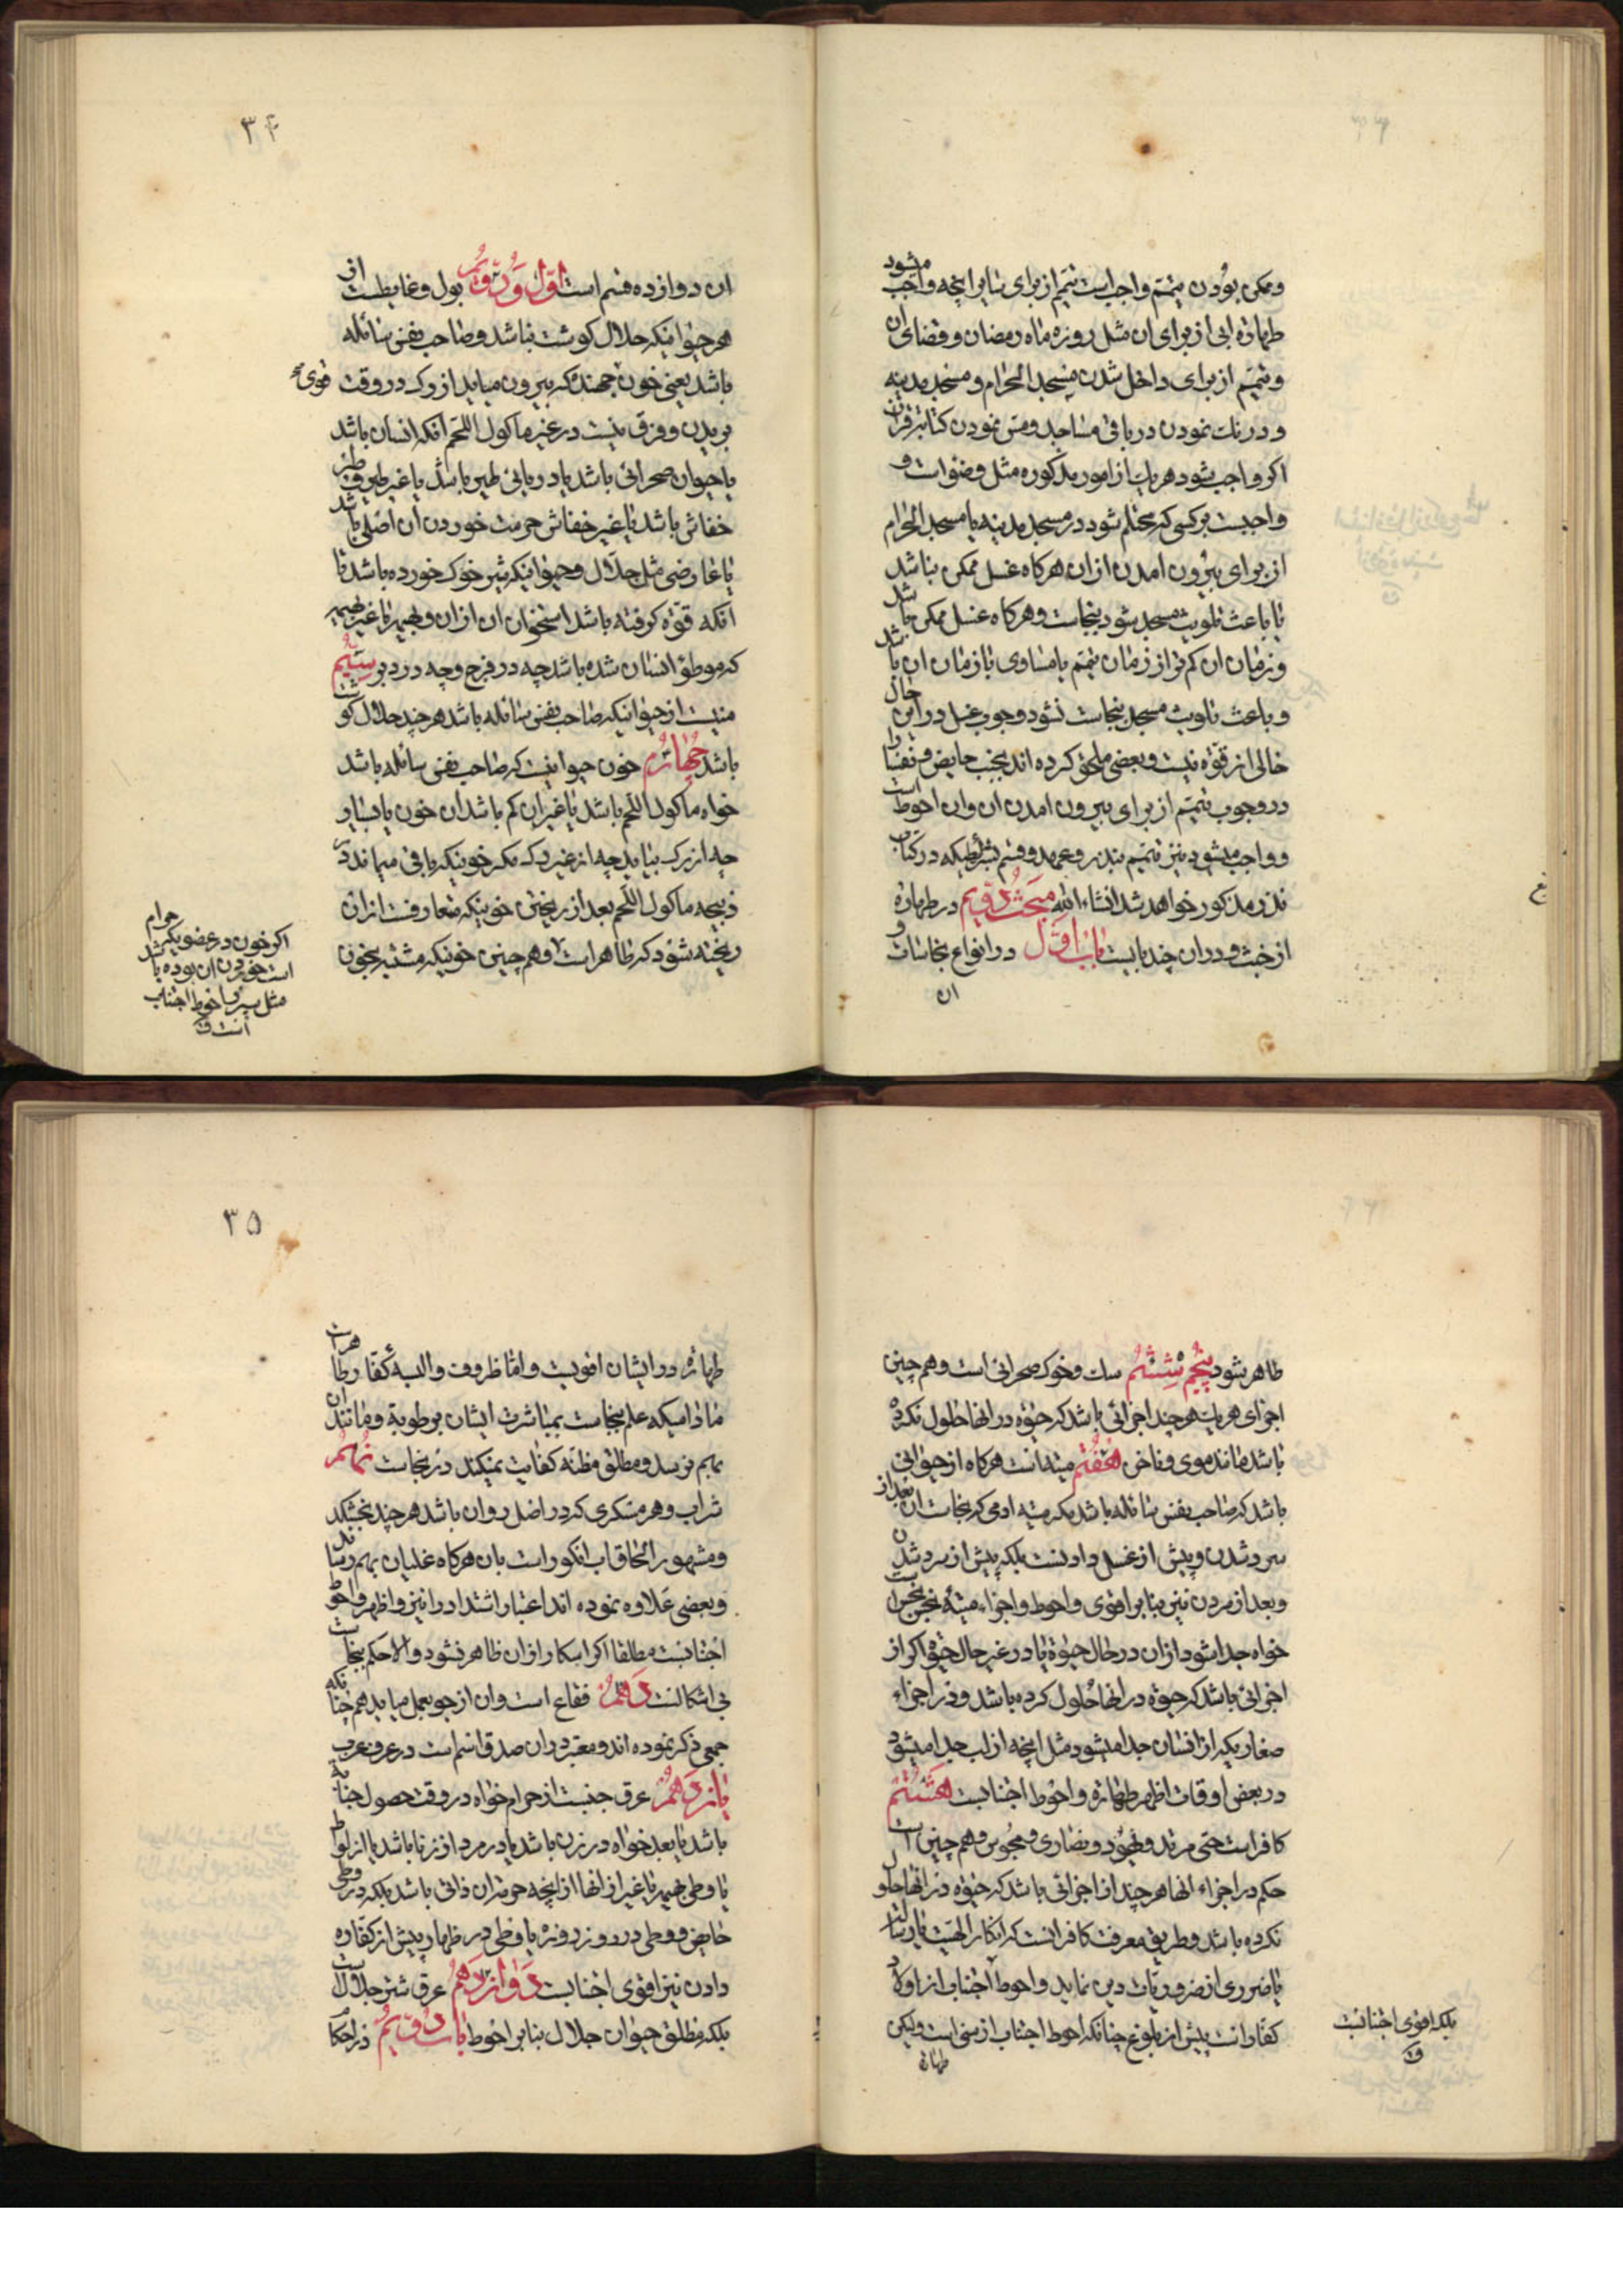 و ممکن بودن تیمم واجب است تیمم از برای بنا بر آنچه واجب میشود
طهارة ابی از برای ان مثل روزه ماه رمضان و قضای ان
و تیمم از برای داخل شدن مسجد الحرام و مسجد مدینه
و درنک نمودن در باقی مساجد و مس نمودن کتابة قران
اکر واجب شود هر یک از امور مذکوره مثل وضوات و
واجبست بر کسی که محتلم شود در مسجد مدینه یا مسجد الحرام
از برای بیرون امدن از ان هرکاه غسل ممکن نباشد
یا باعث تلویث مسجد شود بنجاست و هرکاه غسل ممکن باشد
و زمان ان کم تر از زمان تیمم یا مساوی با زمان ان باشد
و باعث تلویث مسجد بنجاست نشود وجوب غسل در این حال
خالی از قوة نیست و بعضی ملحق کرده اند بجنب حایض و نفسا را
در وجوب تیمم از برای بیرون امدن ان و ان احوط است
و واجب میشود نیز تیمم بنذر و عهد و قسم بشرایطیکه در کتاب
نذر مذکور خواهد شد انشاء الله مبحث دویم در طهارة
از خبث و در ان چند بابست باب اول در انواع نجاسات و
ان
۳۴
ان دوازده قسم است اول و دویم بول و غایطست از
هر حیوانیکه حلال کوشت نباشد و صاحب نفس سائله
باشد یعنی خون جهنده که بیرون میاید از رک در وقت
بریدن و فرق نیست در غیر ماکول اللحم انکه انسان باشد
یا حیوان صحرائی باشد یا دریائی طیر باشد یا غیر طیر و طیر
خفاش باشد یا غیر خفاش حرمت خوردن ان اصلی باشد
یا عارضی مثل جلال و حیوانیکه شیر خوک خورده باشد تا
انکه قوة کرفته باشد استخوان ان از ان و بهیمه یا غیر بهیمه
که موطوء انسان شده باشد چه در فرج و چه در دبر سیّم
منیست از حیوانیکه صاحب نفس سائله باشد هر چند حلال کوشت
باشد چهارم خون حیوانیست که صاحب نفس سائله باشد
خواه ماکول اللحم باشد یا غیر ان کم باشد ان خون یا بسیار
چه از رک بیاید چه از غیر رک مکر خونیکه باقی میماند در
ذبیحه ماکول اللحم بعد از ریختن خونیکه متعارفست از ان
ریخته شود که طاهر است و هم چنین خونیکه مشتبه بخون
اکر خون در عضویکه حرام
است خوردن ان بوده باشد
مثل سپرز احوط اجتناب
است
طاهر شود پنجم ششم سک و خوک صحرائی است و هم چنین
اجزای هر یک هر چند اجزائی باشد که حیوة در انها حلول نکرده
باشد مانند موی و ناخن هفتم میته است هرکاه از حیوانی
باشد که صاحب نفس سائله باشد مکر میته ادمی که نجاست ان بعد از
سرد شدن و پیش از غسل دادنست بلکه پیش از سرد شدن
و بعد از مردن نیز بنا بر اقوی و احوط و اجزاء میته نجس نجس است
خواه جدا شود از ان در حال حیوة یا در غیر حال حیوة اکر از
اجزائی باشد که حیوة در انها حلول کرده باشد و در اجزاء
صغاریکه از انسان جدا میشود مثل انچه از لب جدا میشود
در بعض اوقات اظهر طهارة و احوط اجتنابست هشتم
کافر است حتی مرتد و یهود و نصاری و مجوس و هم چنین است
حکم در اجزاء انها هر چند از اجزائی باشد که حیوة در انها حلول
نکرده باشد و طریق معرفت کافر انست که انکار الهیت یا رسالت
یا ضروری از ضروریات دین نماید و احوط اجتناب از اولاد
کفار است پیش از بلوغ چنانکه احوط اجتناب از سنی است ولیکن
طهارة
بلکه اقوی اجتنابست
۳۵
طهارة در ایشان اقویست و اما ظروف و البسه کفار طاهر است
مادامیکه علم بنجاست بمباشرت ایشان برطوبة و مانند ان
بهم نرسد و مطلق مظنه کفایت نمیکند در نجاست نهم
شراب و هر مسکری که در اصل روان باشد هر چند بخشکد
و مشهور الحاق اب انکور است بان هرکاه غلیان بهم رساند
و بعضی علاوه نموده اند اعتبار اشتداد را نیز و اظهر و احوط
اجتنابست مطلقا اکر اسکار از ان ظاهر نشود والا حکم بنجاست
بی اشکالست دهم فقاع است و ان از جو بعمل میاید هم چنانکه
جمعی ذکر نموده اند و معتبر در ان صدق اسم است در عرف عرب
یازدهم عرق جنبست از حرام خواه در وقت حصول جنابة
باشد یا بعد خواه در زن باشد یا در مرد از زنا باشد یا از لواط
یا وطی بهیمه یا غیر از انها از انچه حرمة ان ذاتی باشد بلکه در وطی
حایض و وطی در روز روزه یا وطی در ظهار پیش از کفاره
دادن نیز اقوی اجتنابست دوازدهم عرق شتر جلال است
بلکه مطلق حیوان جلال بنا بر احوط باب دویم در احکام